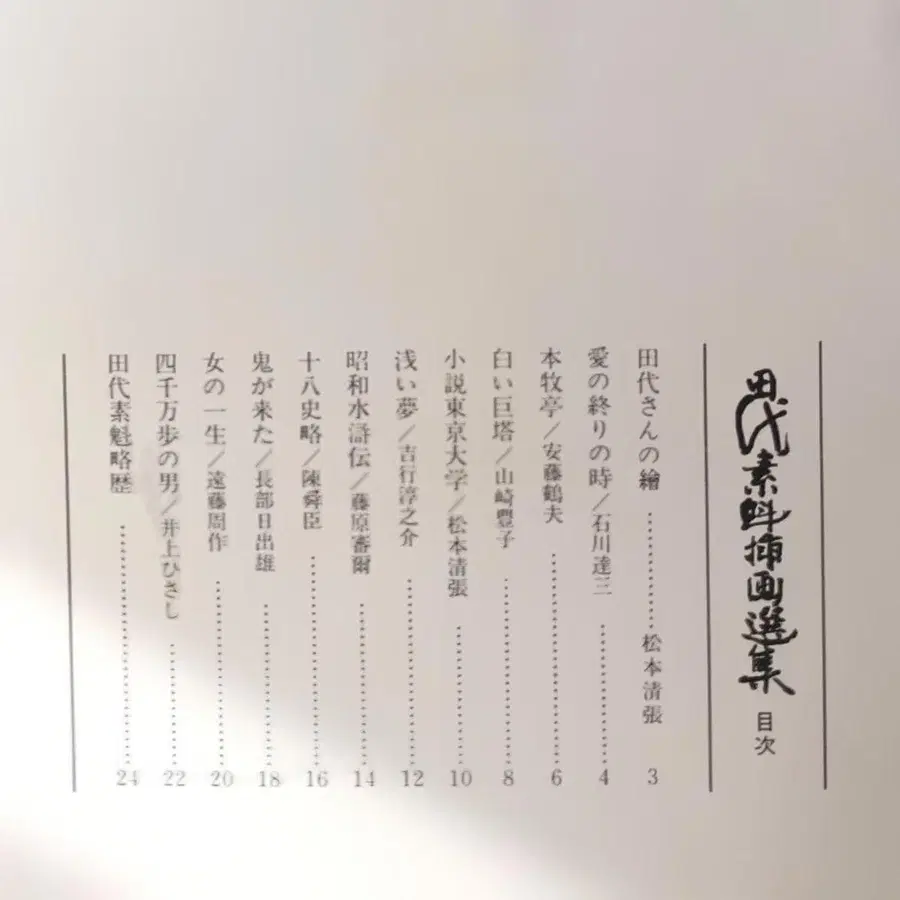 田代素魁挿画選集 目次
田代さんの繪 …………… 松本清張 3
愛の終りの時／石川達三 …………… 4
本牧亭／安藤鶴夫 …………… 6
白い巨塔／山崎豊子 …………… 8
小説東京大学／松本清張 …………… 10
浅い夢／吉行淳之介 …………… 12
昭和水滸伝／藤原審爾 …………… 14
十八史略／陳舜臣 …………… 16
鬼が来た／長部日出雄 …………… 18
女の一生／遠藤周作 …………… 20
四千万歩の男／井上ひさし …………… 22
田代素魁略歴 …………… 24